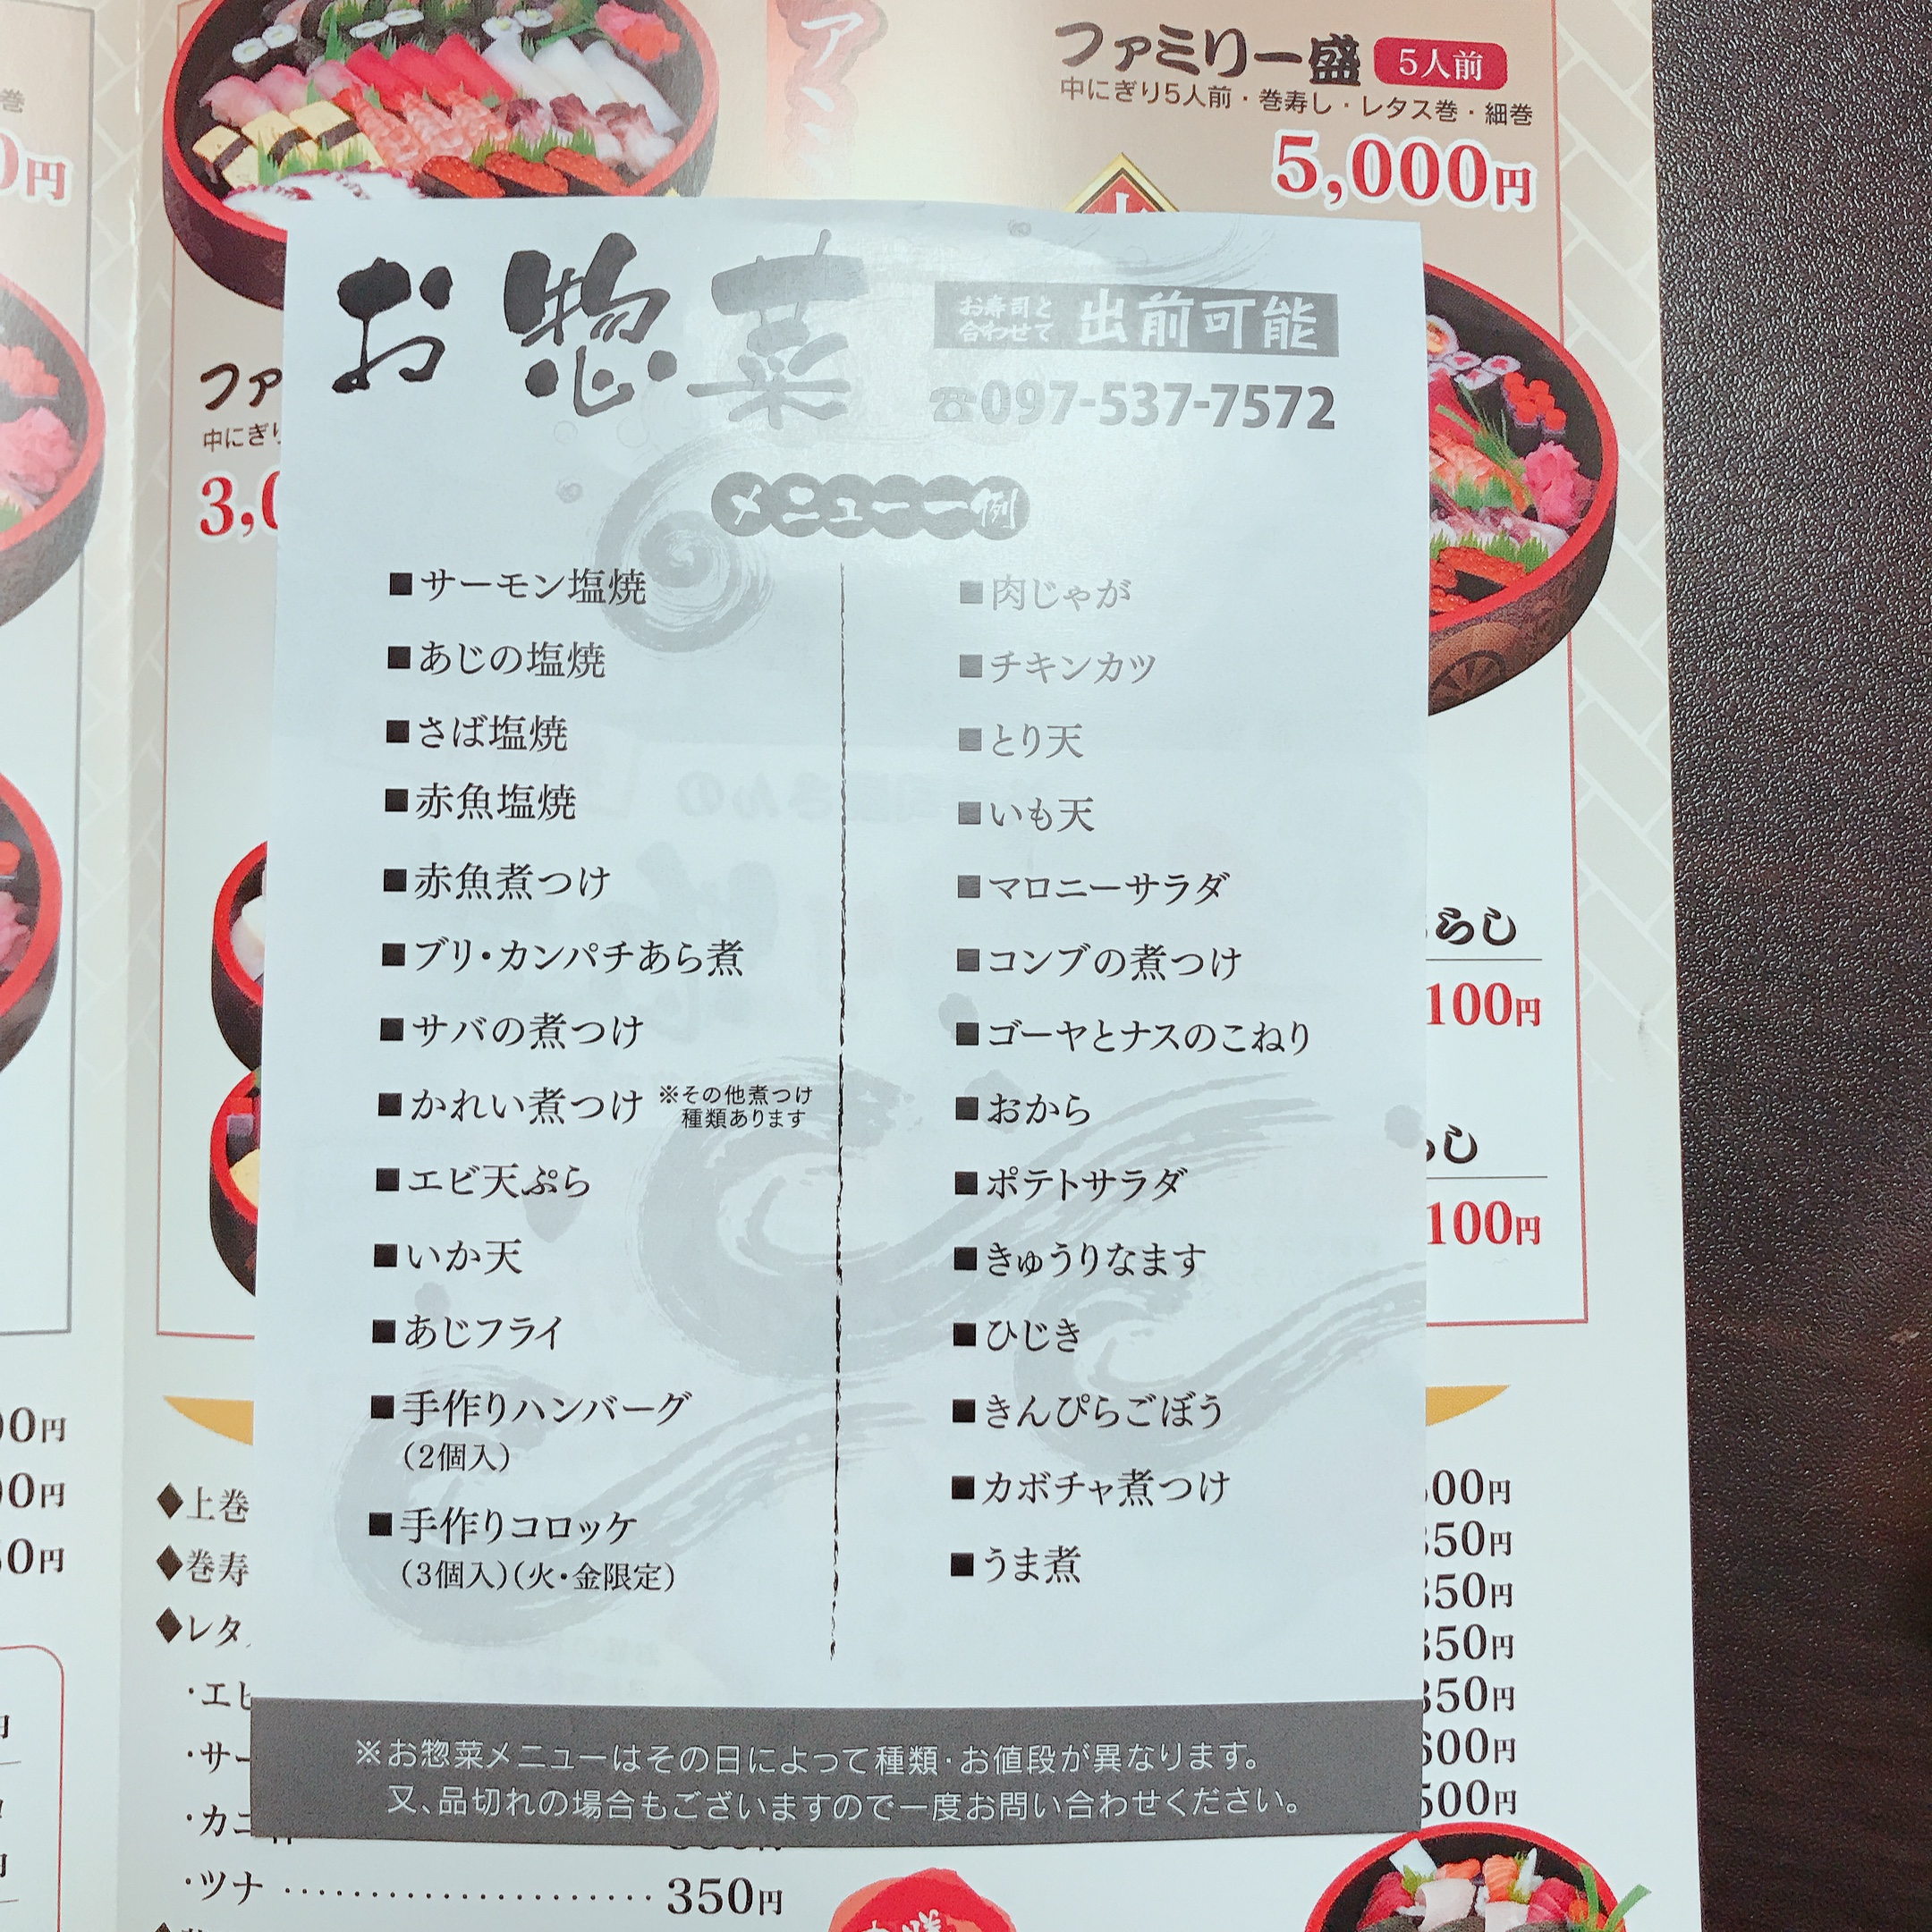 ファミリー盛 5人前
中にぎり5人前・巻寿し・レタス巻・細巻
5,000円
お惣菜
お寿司と
合わせて
出前可能
☎097-537-7572
メニュー一例
■サーモン塩焼
■あじの塩焼
■さば塩焼
■赤魚塩焼
■赤魚煮つけ
■ブリ・カンパチあら煮
■サバの煮つけ
■かれい煮つけ ※その他煮つけ
種類あります
■エビ天ぷら
■いか天
■あじフライ
■手作りハンバーグ
(2個入)
■手作りコロッケ
(3個入)(火・金限定)
■肉じゃが
■チキンカツ
■とり天
■いも天
■マロニーサラダ
■コンブの煮つけ
■ゴーヤとナスのこねり
■おから
■ポテトサラダ
■きゅうりなます
■ひじき
■きんぴらごぼう
■カボチャ煮つけ
■うま煮
※お惣菜メニューはその日によって種類・お値段が異なります。
又、品切れの場合もございますので一度お問い合わせください。
らし
100円
100円
◆上巻
◆巻寿
◆レタ
・ツナ 350円